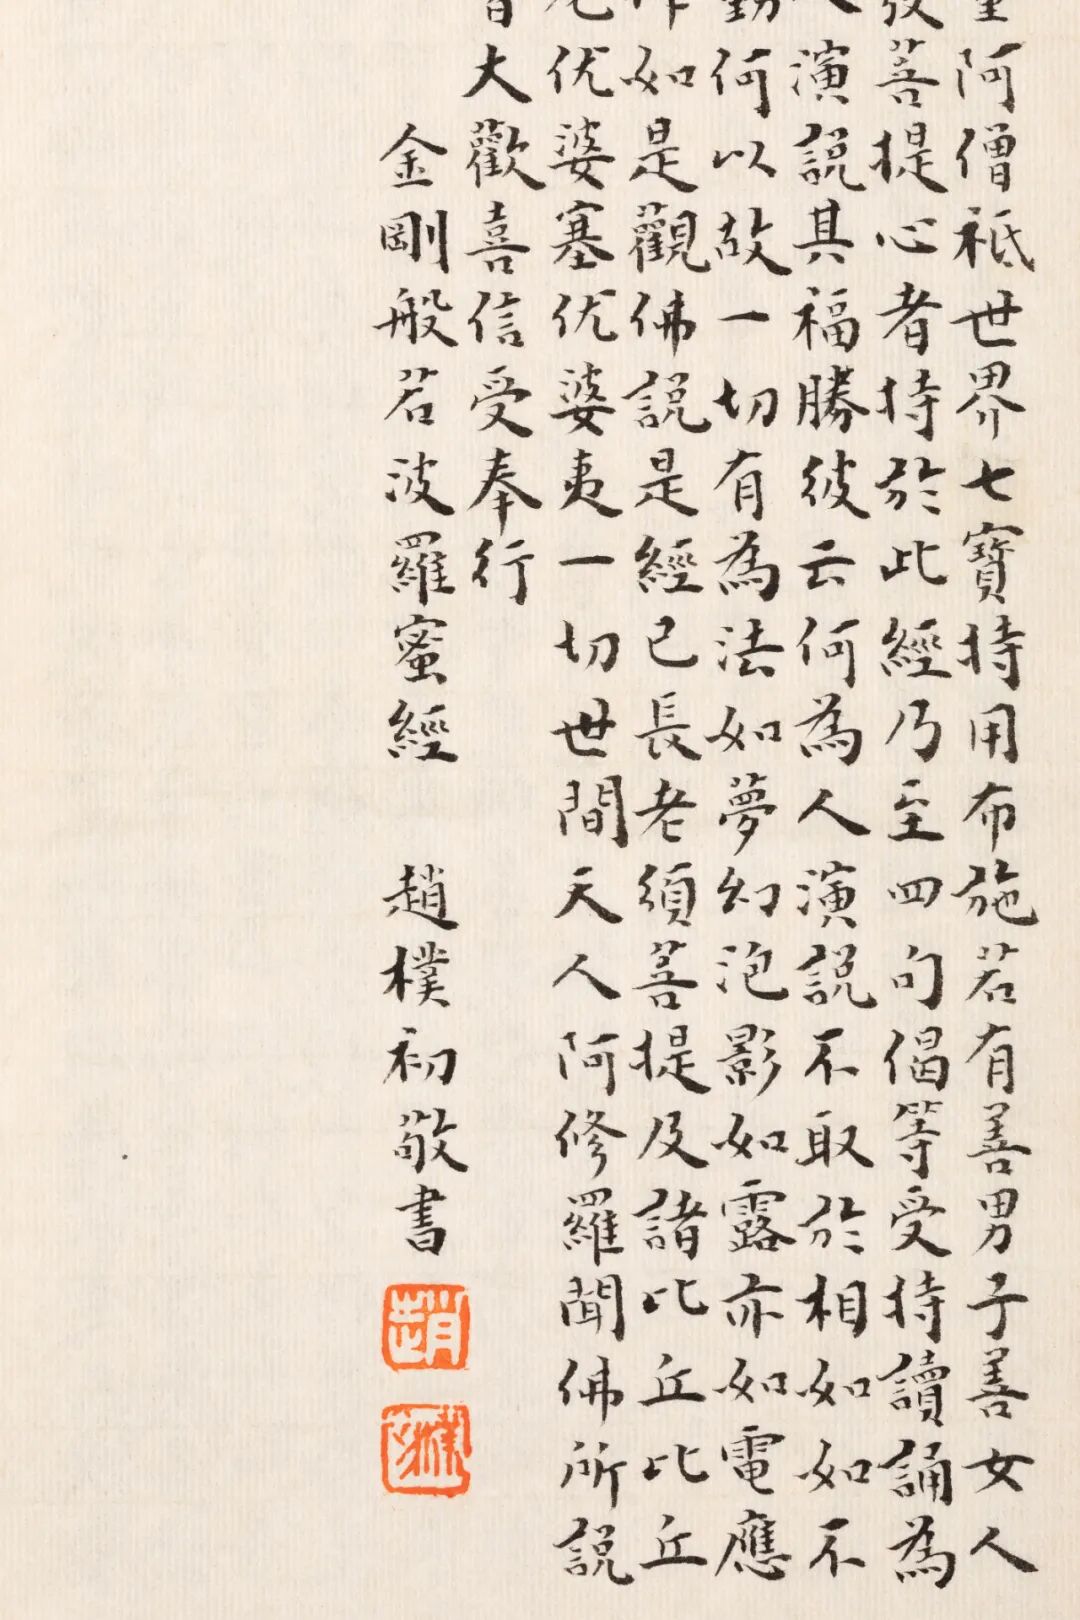 阿僧祇世界七寶持用布施若有善男子善女人
發菩提心者持於此經乃至四句偈等受持讀誦為
人演說其福勝彼云何為人演說不取於相如如不
動何以故一切有為法如夢幻泡影如露亦如電應
作如是觀佛說是經已長老須菩提及諸比丘比丘
尼优婆塞优婆夷一切世間天人阿修羅聞佛所說
皆大歡喜信受奉行
金剛般若波羅蜜經 趙樸初敬書
趙
樸初